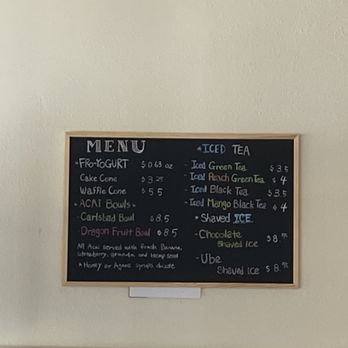 MENU
*FRO-YOGURT $0.69 oz
Cake Cone $3.25
Waffle Cone $5.5
*ACAI Bowls*
-Carlsbad Bowl $8.5
-Dragon Fruit Bowl $8.5
All Acai served with fresh Banana,
Strawberry, Granola and hemp seed
*Honey or Agave syrups drizzle
*ICED TEA
-Iced Green Tea $3.5
-Iced Peach Green Tea $4
-Iced Black Tea $3.5
-Iced Mango Black Tea $4
*Shaved ICE
-Chocolate
Shaved Ice $8.
-Ube
Shaved Ice $8.